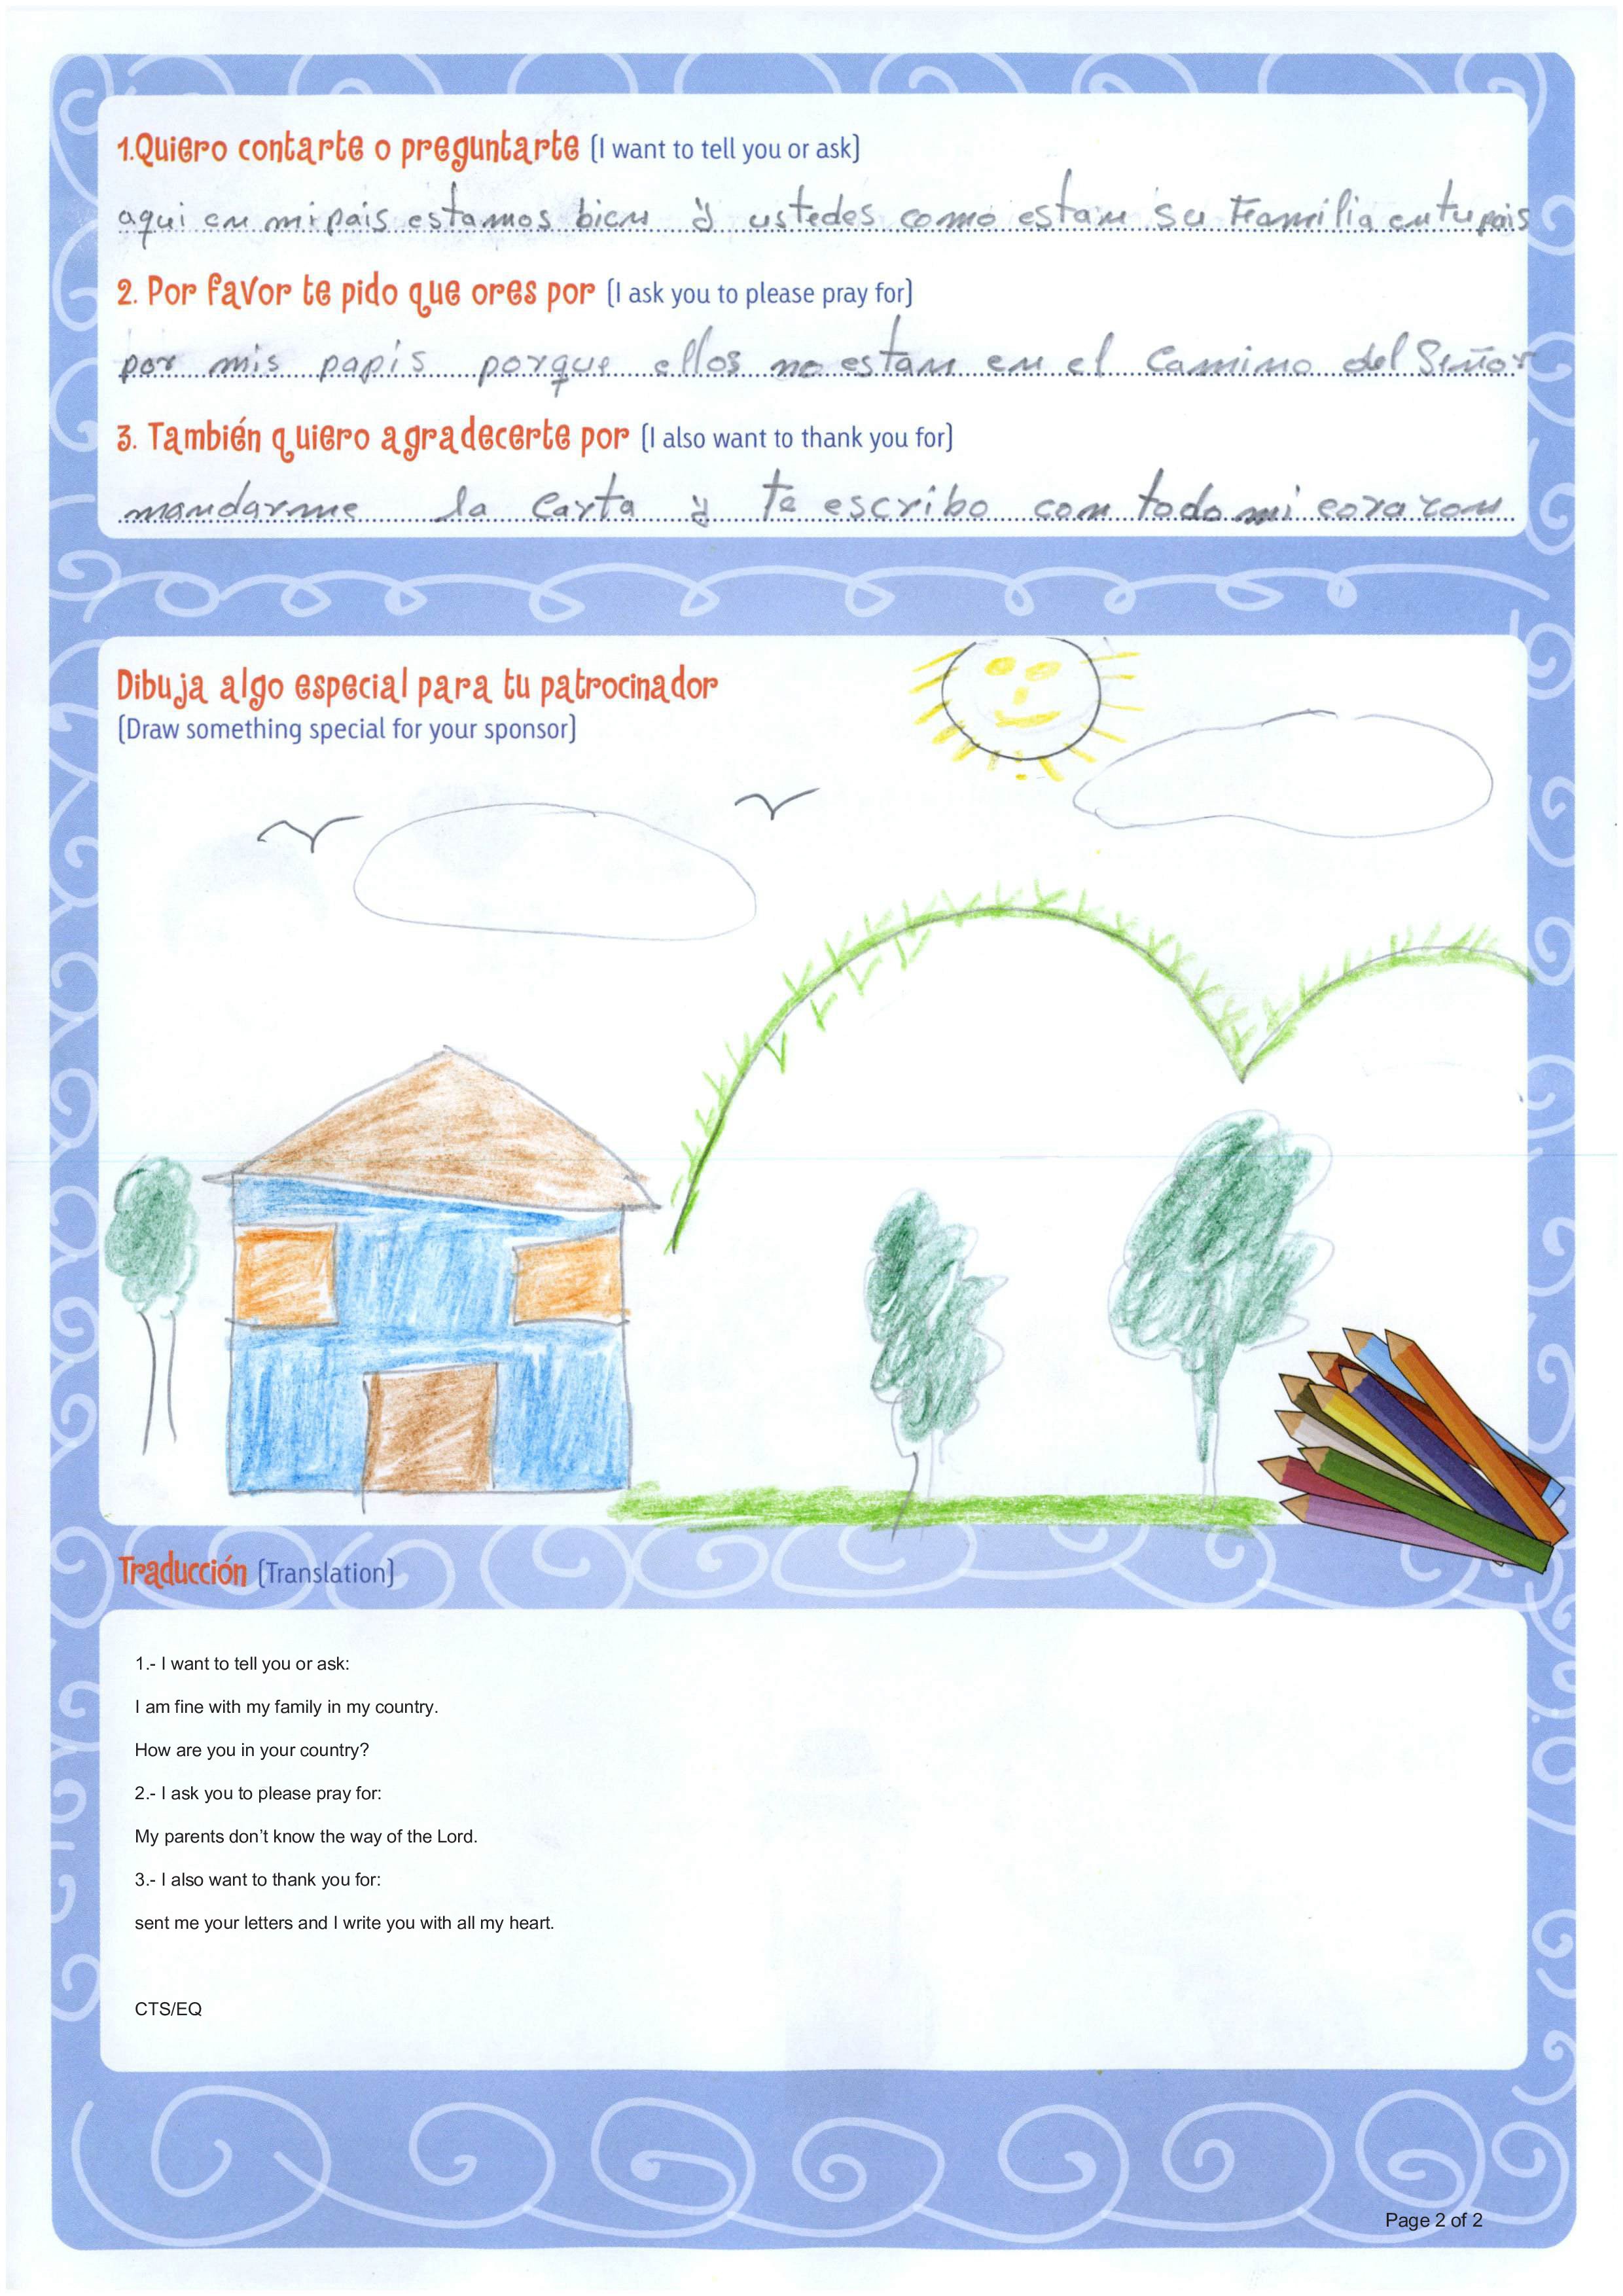 1.Quiero contarte o preguntarte (I want to tell you or ask)
aqui en mi pais estamos bien y ustedes como estan su Familia en tu pais
2. Por favor te pido que ores por (I ask you to please pray for)
por mis papis porque ellos no estan en el Camino del Señor
3. También quiero agradecerte por (I also want to thank you for)
mandarme la Carta y te escribo con todo mi corazon
Dibuja algo especial para tu patrocinador
(Draw something special for your sponsor)
Traducción (Translation)
1.- I want to tell you or ask:
I am fine with my family in my country.
How are you in your country?
2.- I ask you to please pray for:
My parents don’t know the way of the Lord.
3.- I also want to thank you for:
sent me your letters and I write you with all my heart.
CTS/EQ
Page 2 of 2